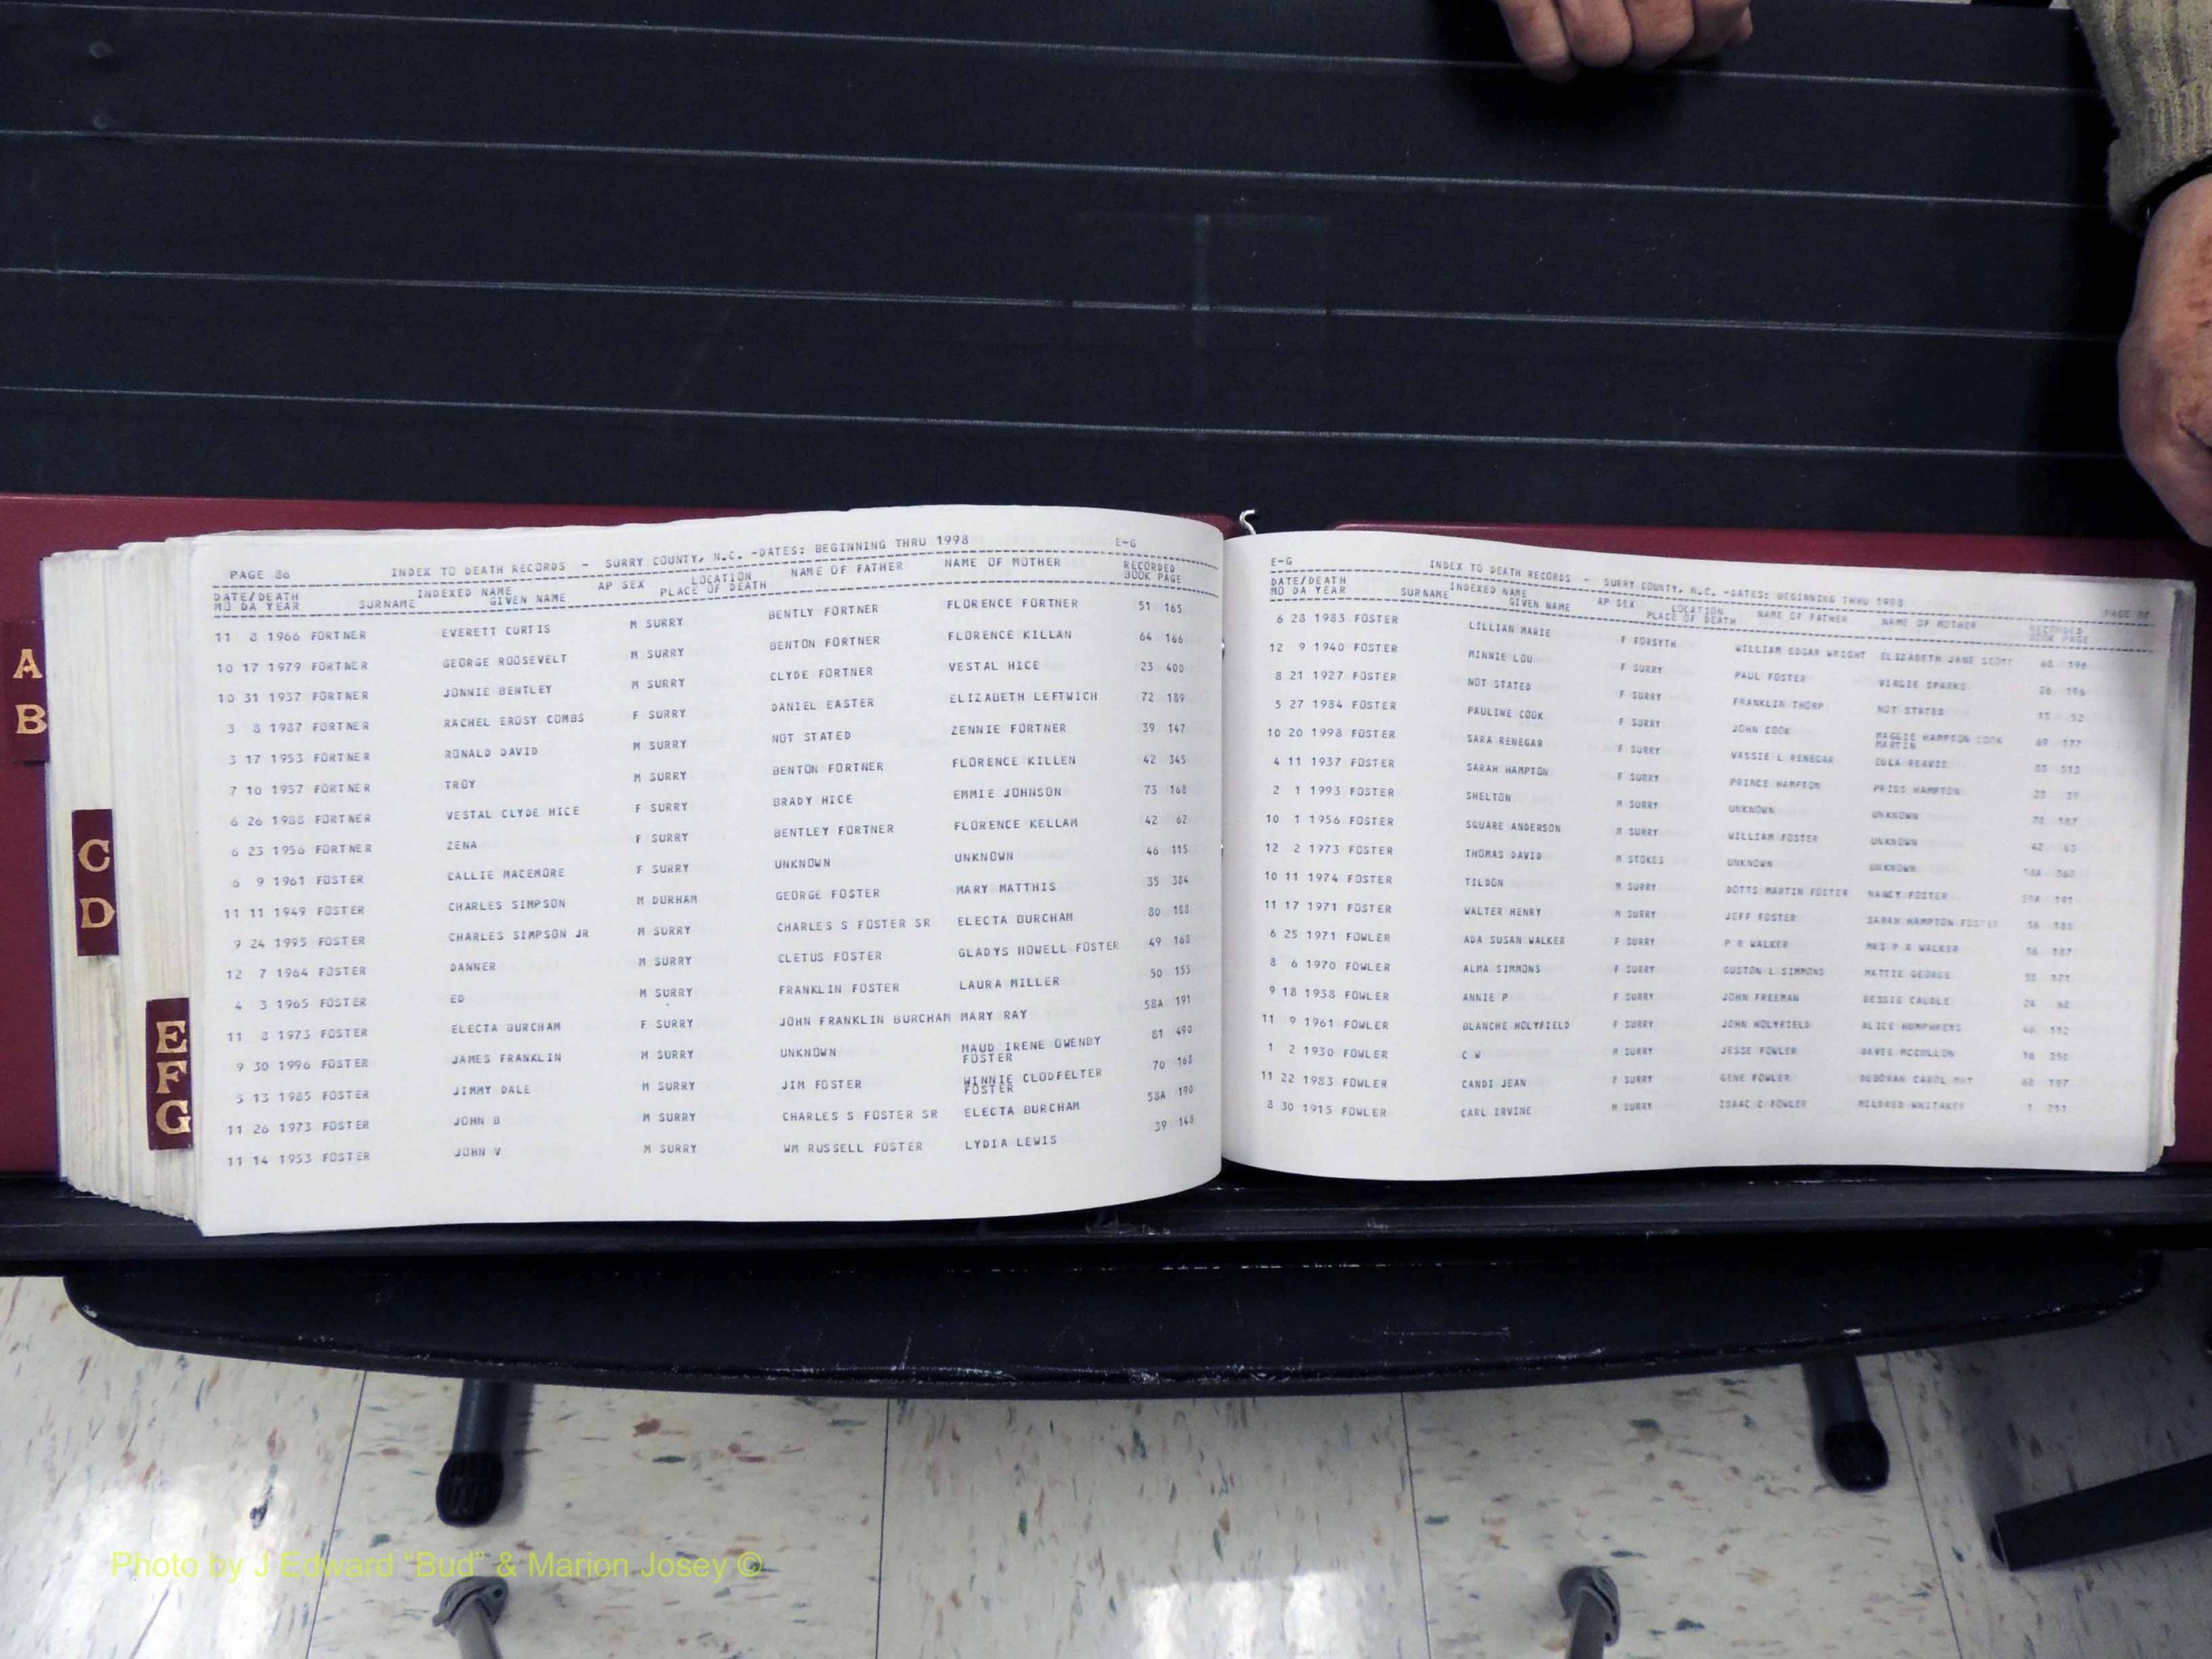 A
B
C
D
E
F
G
PAGE 86 INDEX TO DEATH RECORDS - SURRY COUNTY, N.C. -DATES: BEGINNING THRU 1998 E-G
DATE/DEATH INDEXED NAME AP SEX LOCATION NAME OF FATHER NAME OF MOTHER RECORDED
MO DA YEAR SURNAME GIVEN NAME PLACE OF DEATH BOOK PAGE
11 8 1966 FORTNER EVERETT CURTIS M SURRY BENTLY FORTNER FLORENCE FORTNER 51 165
10 17 1979 FORTNER GEORGE ROOSEVELT M SURRY BENTON FORTNER FLORENCE KILLAN 64 166
10 31 1937 FORTNER JONNIE BENTLEY M SURRY CLYDE FORTNER VESTAL HICE 23 400
3 8 1987 FORTNER RACHEL EROSY COMBS F SURRY DANIEL EASTER ELIZABETH LEFTWICH 72 189
3 17 1953 FORTNER RONALD DAVID M SURRY NOT STATED ZENNIE FORTNER 39 147
7 10 1957 FORTNER TROY M SURRY BENTON FORTNER FLORENCE KILLEN 42 345
6 26 1988 FORTNER VESTAL CLYDE HICE F SURRY BRADY HICE EMMIE JOHNSON 73 168
6 23 1956 FORTNER ZENA F SURRY BENTLEY FORTNER FLORENCE KELLAM 42 62
6 9 1961 FOSTER CALLIE MACEMORE F SURRY UNKNOWN UNKNOWN 46 115
11 11 1949 FOSTER CHARLES SIMPSON M DURHAM GEORGE FOSTER MARY MATTHIS 35 384
9 24 1995 FOSTER CHARLES SIMPSON JR M SURRY CHARLES S FOSTER SR ELECTA BURCHAM 80 188
12 7 1964 FOSTER DANNER M SURRY CLETUS FOSTER GLADYS HOWELL FOSTER 49 168
4 3 1965 FOSTER ED M SURRY FRANKLIN FOSTER LAURA MILLER 50 155
11 8 1973 FOSTER ELECTA BURCHAM F SURRY JOHN FRANKLIN BURCHAM MARY RAY 58A 191
9 30 1996 FOSTER JAMES FRANKLIN M SURRY UNKNOWN MAUD IRENE OWENBY 81 490
FOSTER
5 13 1985 FOSTER JIMMY DALE M SURRY JIM FOSTER WINNIE CLODFELTER 70 168
FOSTER
11 26 1973 FOSTER JOHN B M SURRY CHARLES S FOSTER SR ELECTA BURCHAM 58A 190
11 14 1953 FOSTER JOHN V M SURRY WM RUSSELL FOSTER LYDIA LEWIS 39 148
E-G INDEX TO DEATH RECORDS - SURRY COUNTY, N.C. -DATES: BEGINNING THRU 1998 PAGE
DATE/DEATH INDEXED NAME AP SEX LOCATION NAME OF FATHER NAME OF MOTHER RECORDED
MO DA YEAR SURNAME GIVEN NAME PLACE OF DEATH BOOK PAGE
6 28 1983 FOSTER LILLIAN MARIE F FORSYTH WILLIAM EDGAR WRIGHT ELIZABETH JANE SCOTT 68 196
12 9 1940 FOSTER MINNIE LOU F SURRY PAUL FOSTER VIRGIE SPARKS 26 196
8 21 1927 FOSTER NOT STATED F SURRY FRANKLIN THORP NOT STATED 52
5 27 1984 FOSTER PAULINE COOK F SURRY JOHN COOK MAGGIE HAMPTON COOK 69 177
MARTIN
10 20 1998 FOSTER SARA RENEGAR F SURRY VASSIE L RENEGAR EULA REAVIS 83 513
4 11 1937 FOSTER SARAH HAMPTON F SURRY PRINCE HAMPTON PRISS HAMPTON 23 39
2 1 1993 FOSTER SHELTON M SURRY UNKNOWN UNKNOWN 78 187
10 1 1956 FOSTER SQUARE ANDERSON M SURRY WILLIAM FOSTER UNKNOWN 42 63
12 2 1973 FOSTER THOMAS DAVID M STOKES UNKNOWN UNKNOWN
10 11 1974 FOSTER TILDON M SURRY DOTTS MARTIN FOSTER NANCY FOSTER 59A 191
11 17 1971 FOSTER WALTER HENRY M SURRY JEFF FOSTER SARAH HAMPTON FOSTER 56 188
6 25 1971 FOWLER ADA SUSAN WALKER F SURRY P R WALKER MRS P R WALKER 56 187
8 6 1970 FOWLER ALMA SIMMONS F SURRY GUSTON L SIMMONS MATTIE GEORGE 55 171
9 18 1938 FOWLER ANNIE P F SURRY JOHN FREEMAN BESSIE CAUDLE 24
11 9 1961 FOWLER BLANCHE HOLYFIELD F SURRY JOHN HOLYFIELD ALICE HUMPHREYS 46 112
1 2 1930 FOWLER C W M SURRY JESSE FOWLER DAVIE MCCOLLON 16 350
11 22 1983 FOWLER CANDI JEAN F SURRY GENE FOWLER DEBORAH CAROL MAY 68 197
8 30 1915 FOWLER CARL IRVINE M SURRY ISAAC C FOWLER MILDRED WHITAKER 1 211
Photo by J Edward "Bud" & Marion Josey ©